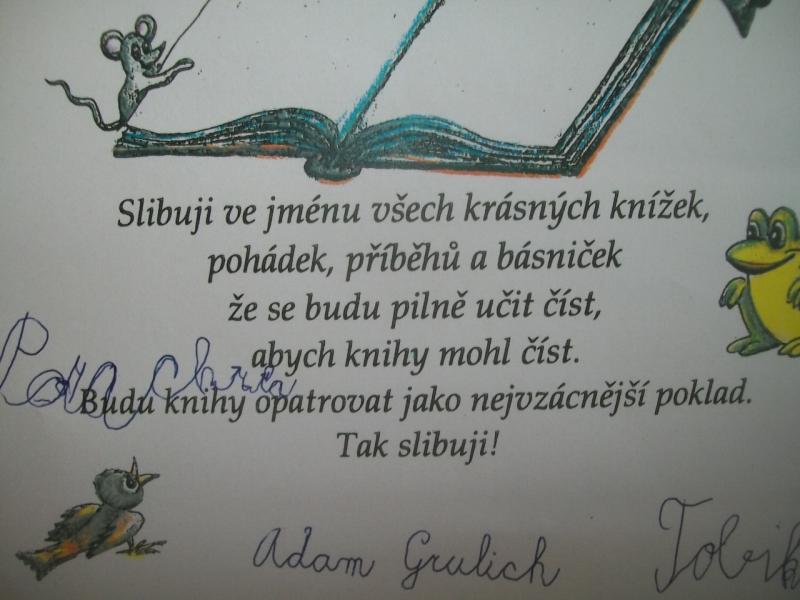 Slibuji ve jménu všech krásných knížek,
pohádek, příběhů a básniček
že se budu pilně učit číst,
abych knihy mohl číst.
Budu knihy opatrovat jako nejvzácnější poklad.
Tak slibuji!
Adam Grulich